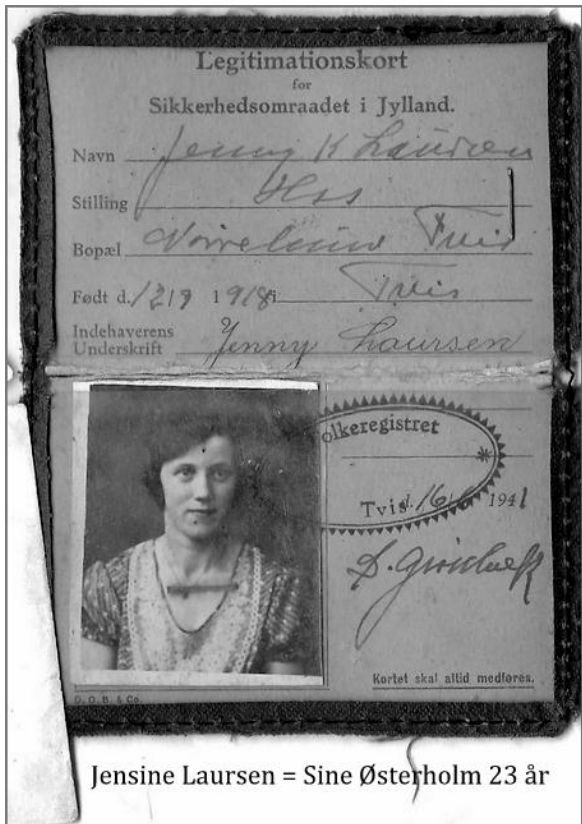 Legitimationskort
for
Sikkerhedsomraadet i Jylland.
Navn Jenny K Laursen
Stilling
Bopæl Tvis
Født d. 12/9 1918 i Tvis
Indehaverens
Underskrift Jenny Laursen
Folkeregistret
Tvis d. 16/ 1941
Kortet skal altid medføres.
O. O. B. & Co.
Jensine Laursen = Sine Østerholm 23 år